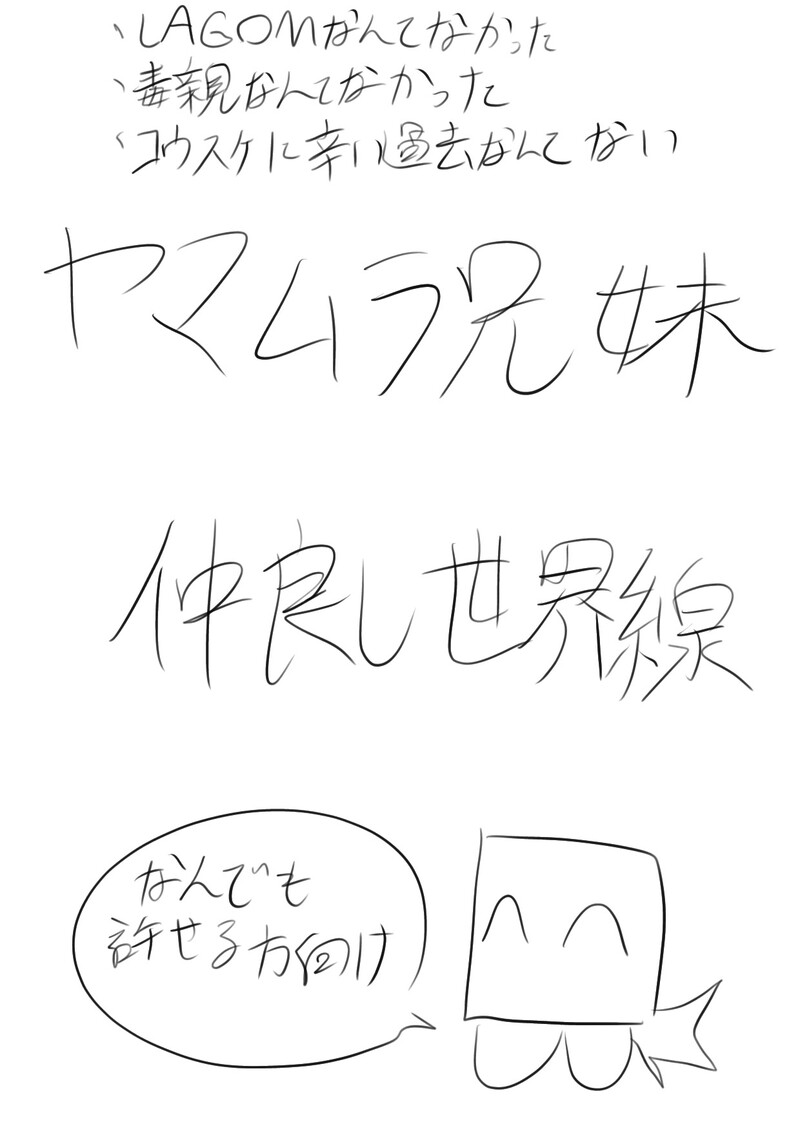 、LAGOMなんてなかった
、毒親なんてなかった
、コウスケに辛い過去なんてない
ヤマムラ兄妹
仲良し世界線
なんでも
許せる方向け